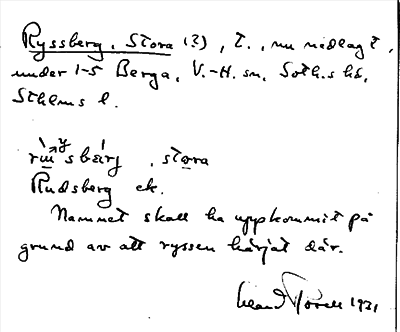 Ryssberg, Stora (3), t., nu nedlagt,
under 1-5 Berga, V.-H. sn, Soth.s hd,
Sthlms l.
, stora
Rudsberg ek.
Namnet skall ha uppkommit på
grund av att ryssen härjat där.
1931